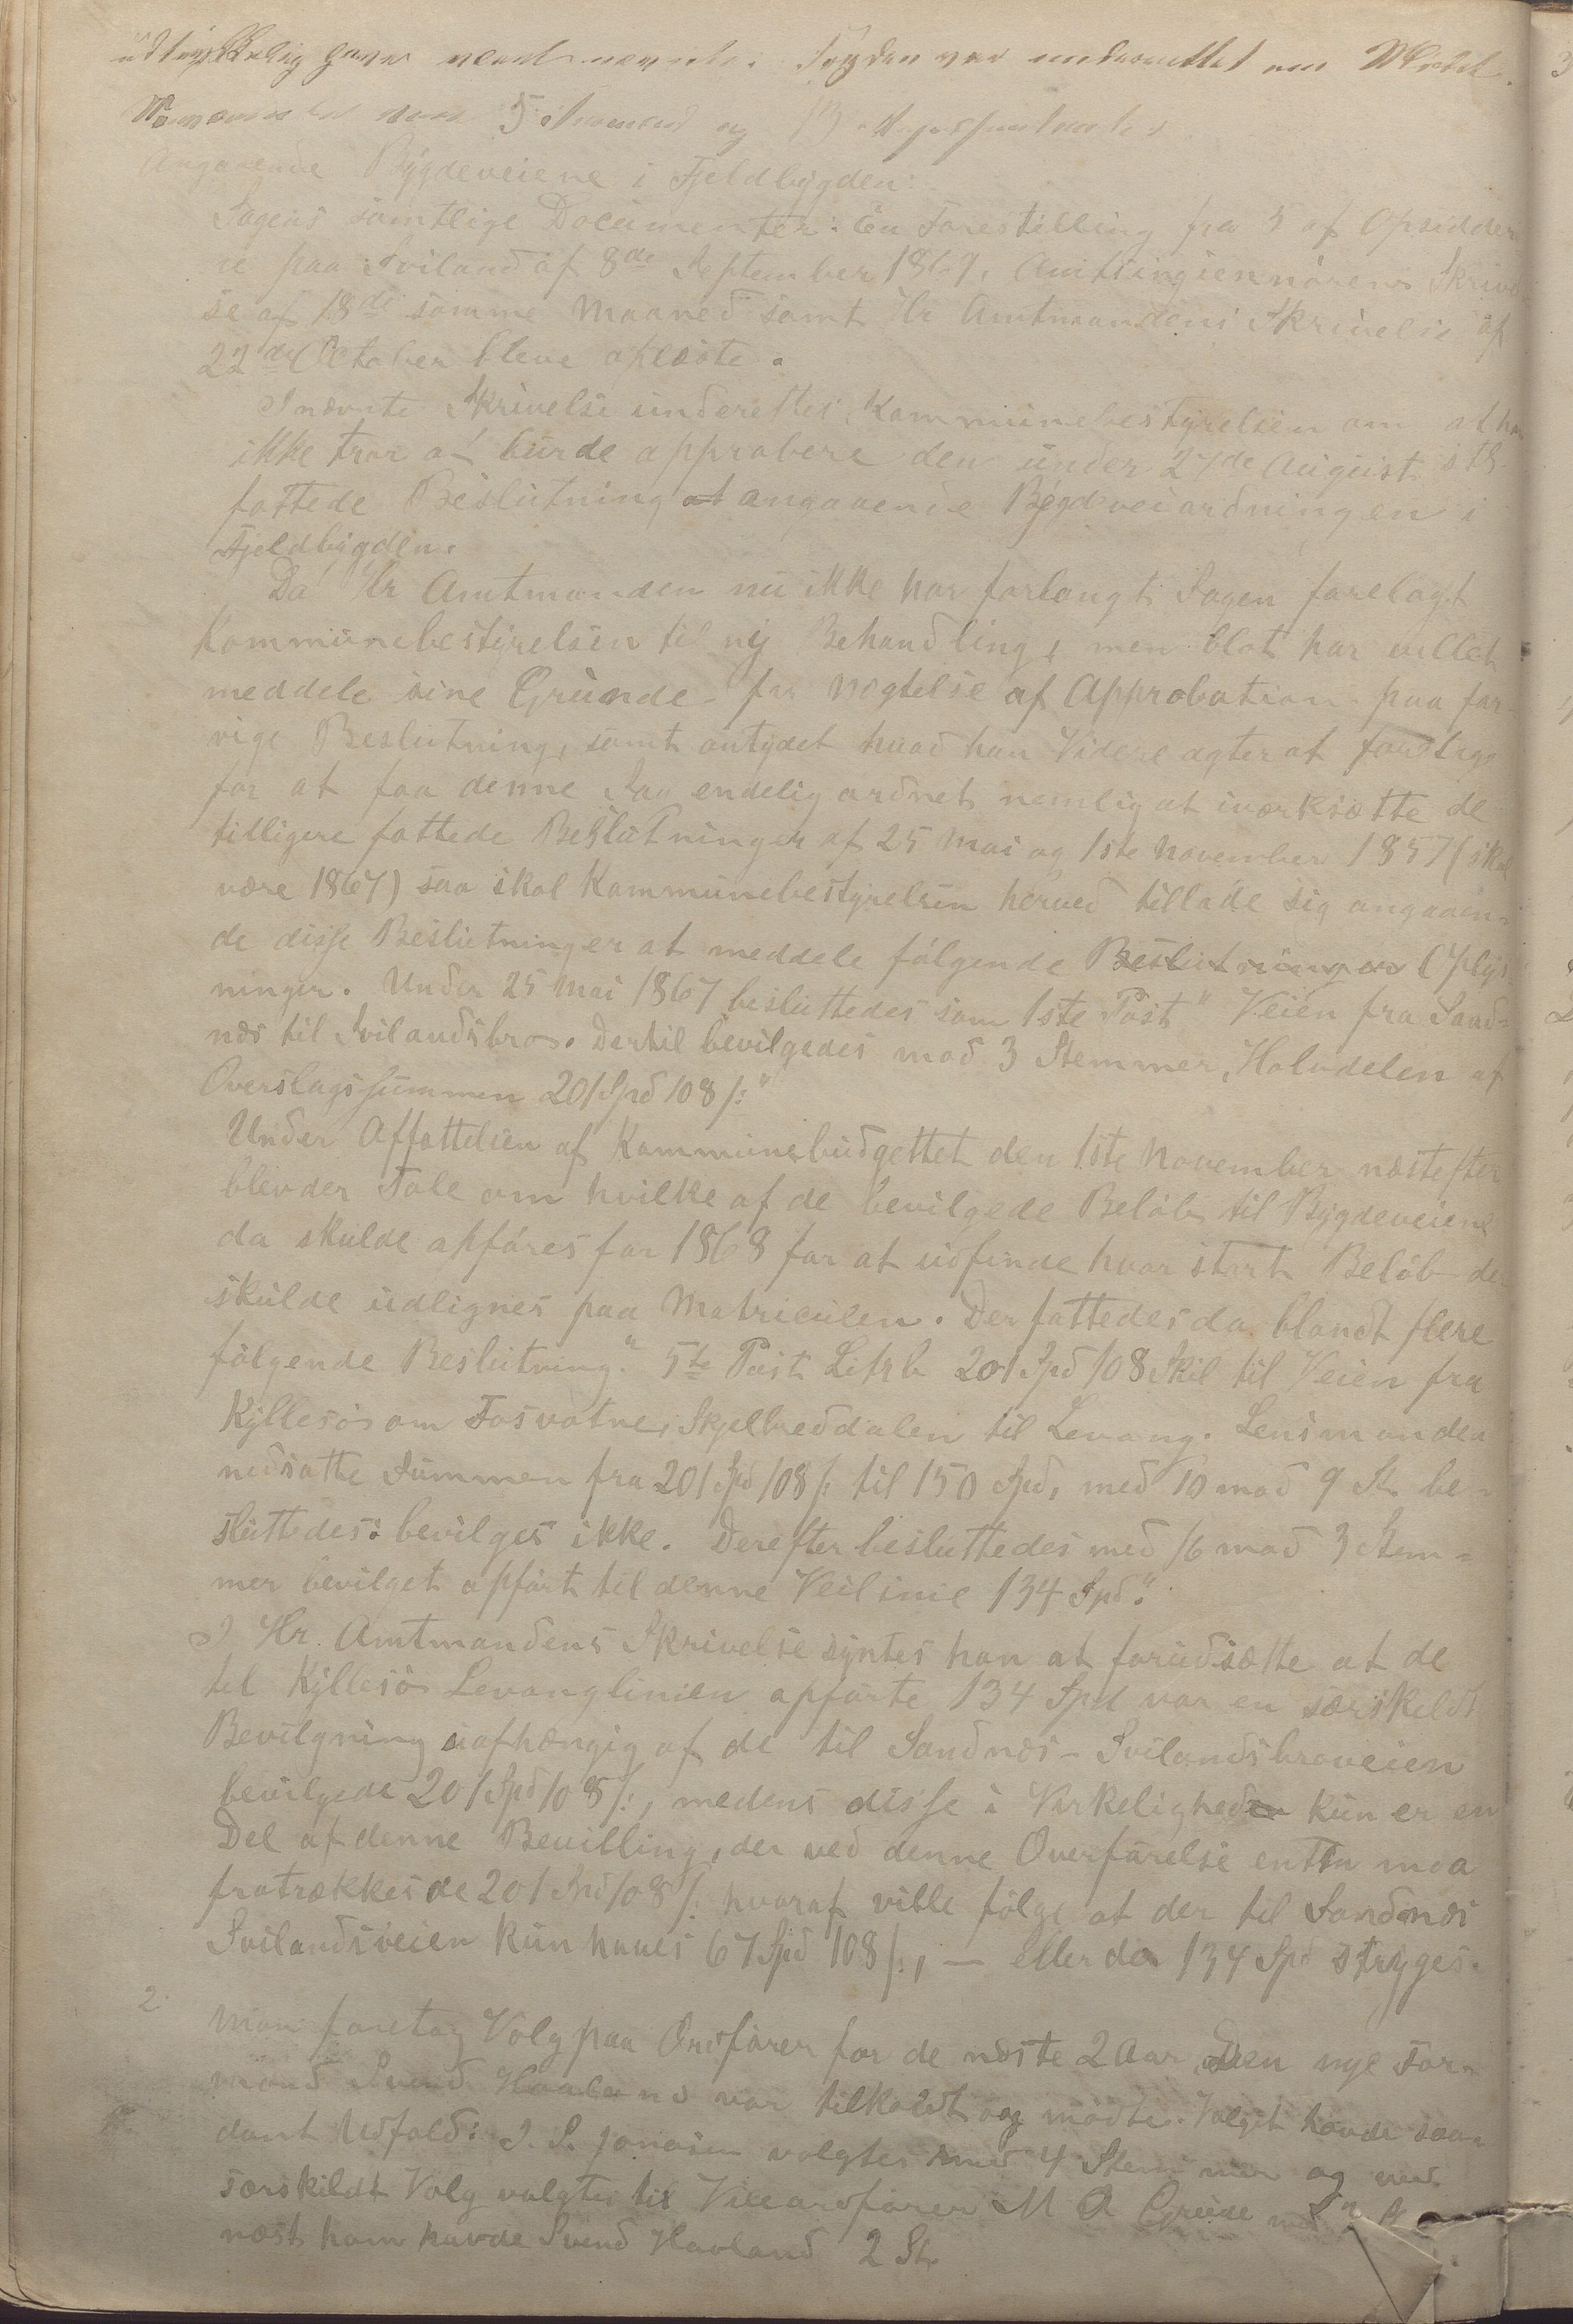 Fogden var underrettet om Mødet.
5 og 13
Angaaende Bÿgdeveiene i Fjeldbÿgden:
Sagens samtlige Documenter: En Forestilling fra 5 af Opsidder
ne paa Sviland af 8de September 1869, Amtsingeniørens Skrivel
se af 18de samme Maaned samt Hr Amtmandens Skrivelse af
22de October bleve oplæste.
I nævnte Skrivelse underettes Kommunebestÿrelsen om at han
ikke tror at burde approbere den under 27de August sth
fattede Beslutning at angaaende Bÿgdeveiordningen i
Fjeldbÿgden.
Da Hr Amtmanden nu ikke har forlangt Sagen forelagt
Kommunebestÿrelsen til nÿ Behandling, men blot har villet
meddele sine Grunde for Nægtelse af Approbation paa for-
rige Beslutning, samt antÿdet hvad han Videre agter at foretage
for at faa denne Sag endelig ordnet nemlig at iværksætte de
tidligere fattede Beslutninger af 25 Mai og 1ste November 1857 (skal
være 1867) saa skal Kommunebestÿrelsen herved tillade sig angaaen-
de disse Beslutninger at meddele følgende Beslutninger Oplÿs
ninger. Under 25 Mai 1867 besluttedes som 1ste Post "Veien fra Sand-
næs til Svilandsbro. Dertil bevilgedes mod 3 Stemmer, Halvdelen af
Overslagssummen 201 Spd 108 /:"
Under Affattelsen af Kommunebudgettet den 1ste November næstefter
blev der Tale om hvilke af de bevilgede Beløb til Bÿgdeveiene
da skulde opføres for 1868 for at udfinde hvor stort Beløb der
skulde udlignes paa Matriculen. Der fattedes da blandt flere
følgende Beslutning." 5te Post Litr b 201 Spd 108 Skil til Veien fra
Kÿllesø om Fosvatne, Skjelbreddalen til Levang. Lensmanden
nedsatte Summen fra 201 Spd 108 /: til 150 Spd, med 10 mod 9 St be-
sluttedes: bevilges ikke. Derefter besluttedes med 16 mod 3 Stem-
mer bevilget opført til denne Veilinie 134 Spd."
I Hr. Amtmandens Skrivelse sÿntes han at forudsætte at de
til Kÿllesø Levanglinien opførte 134 Spd var en særskeldt
Bevilgning uafhængig af de til Sandnæs-Svilandsbroveien
bevilgede 201 Spd 108 /:, medens disse i Virkeligheden kun er en
Del af denne Bevilling, der ved denne Overførelse enten maa
fratrækkes de 201 Spd 108 /: hvoraf ville følge at der til Sandnæs
Svilandsveien kun haves 67 Spd 108 /:, — eller de 134 Spd strÿges.
2. Man foretog Valg paa Ordfører for de næste 2 Aar. Den nye For-
mand Svend Haaland var tilkaldt og mødte. Valget havde saa-
dant Udfald: J. S. Jonasen valgtes med 4 Stemmer og ved
særskildt Valg valgtes til Viceordfører M A Grude med
næst ham havde Svend Haaland 2 St.